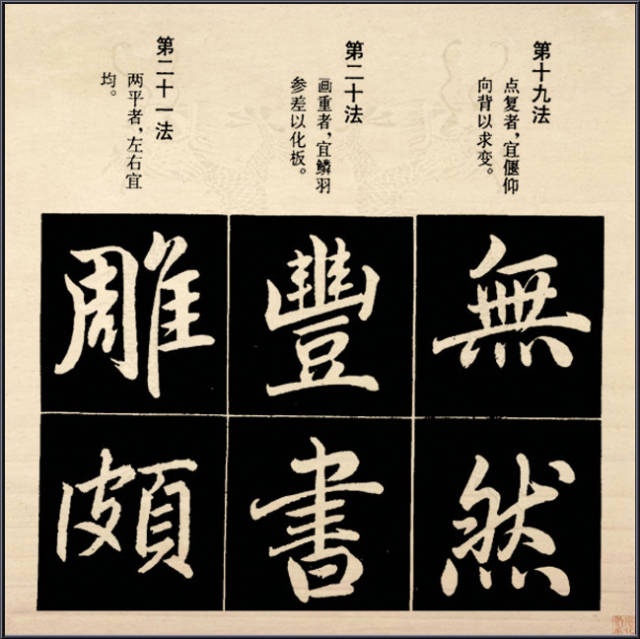 第十九法
点复者，宜偃仰
向背以求变。
第二十法
画重者，宜鳞羽
参差以化板。
第二十一法
两平者，左右宜
均。
無然
豐書
雕頗